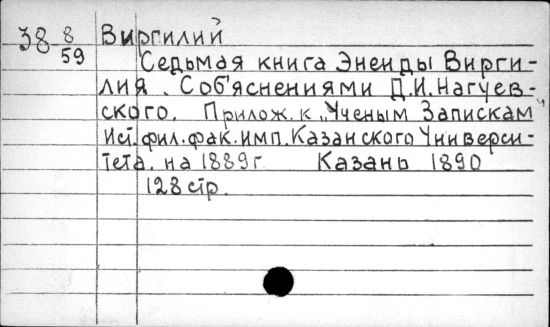 38 8/59 Виргилий
Седьмая книга Энеиды Вирги-
лия. С об'яснениями Д.И.Нагуев-
ского. Прилож. к „Ученым Запискам"
Ист.фил.фак.имп.Казанского Универси-
тета. на 1889 г Казань 1890
128 стр.